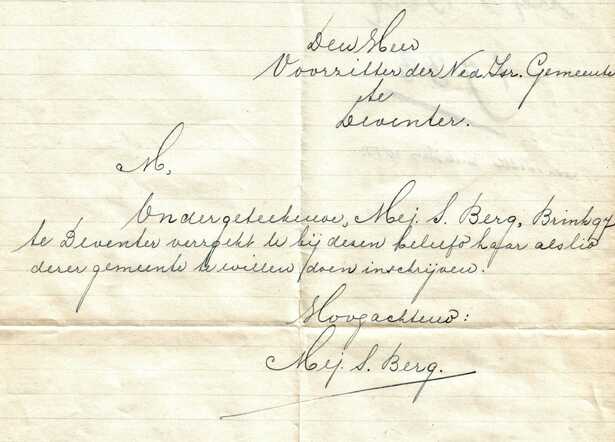 Den Heer
Voorzitter der Ned. Isr. Gemeente
te
Deventer.
M,
Ondergeteekende, Mej. S. Berg, Brink 97
te Deventer verzoekt U bij dezen beleefd haar als lid
derer gemeente te willen doen inschrijven.
Hoogachtend:
Mej. S. Berg.